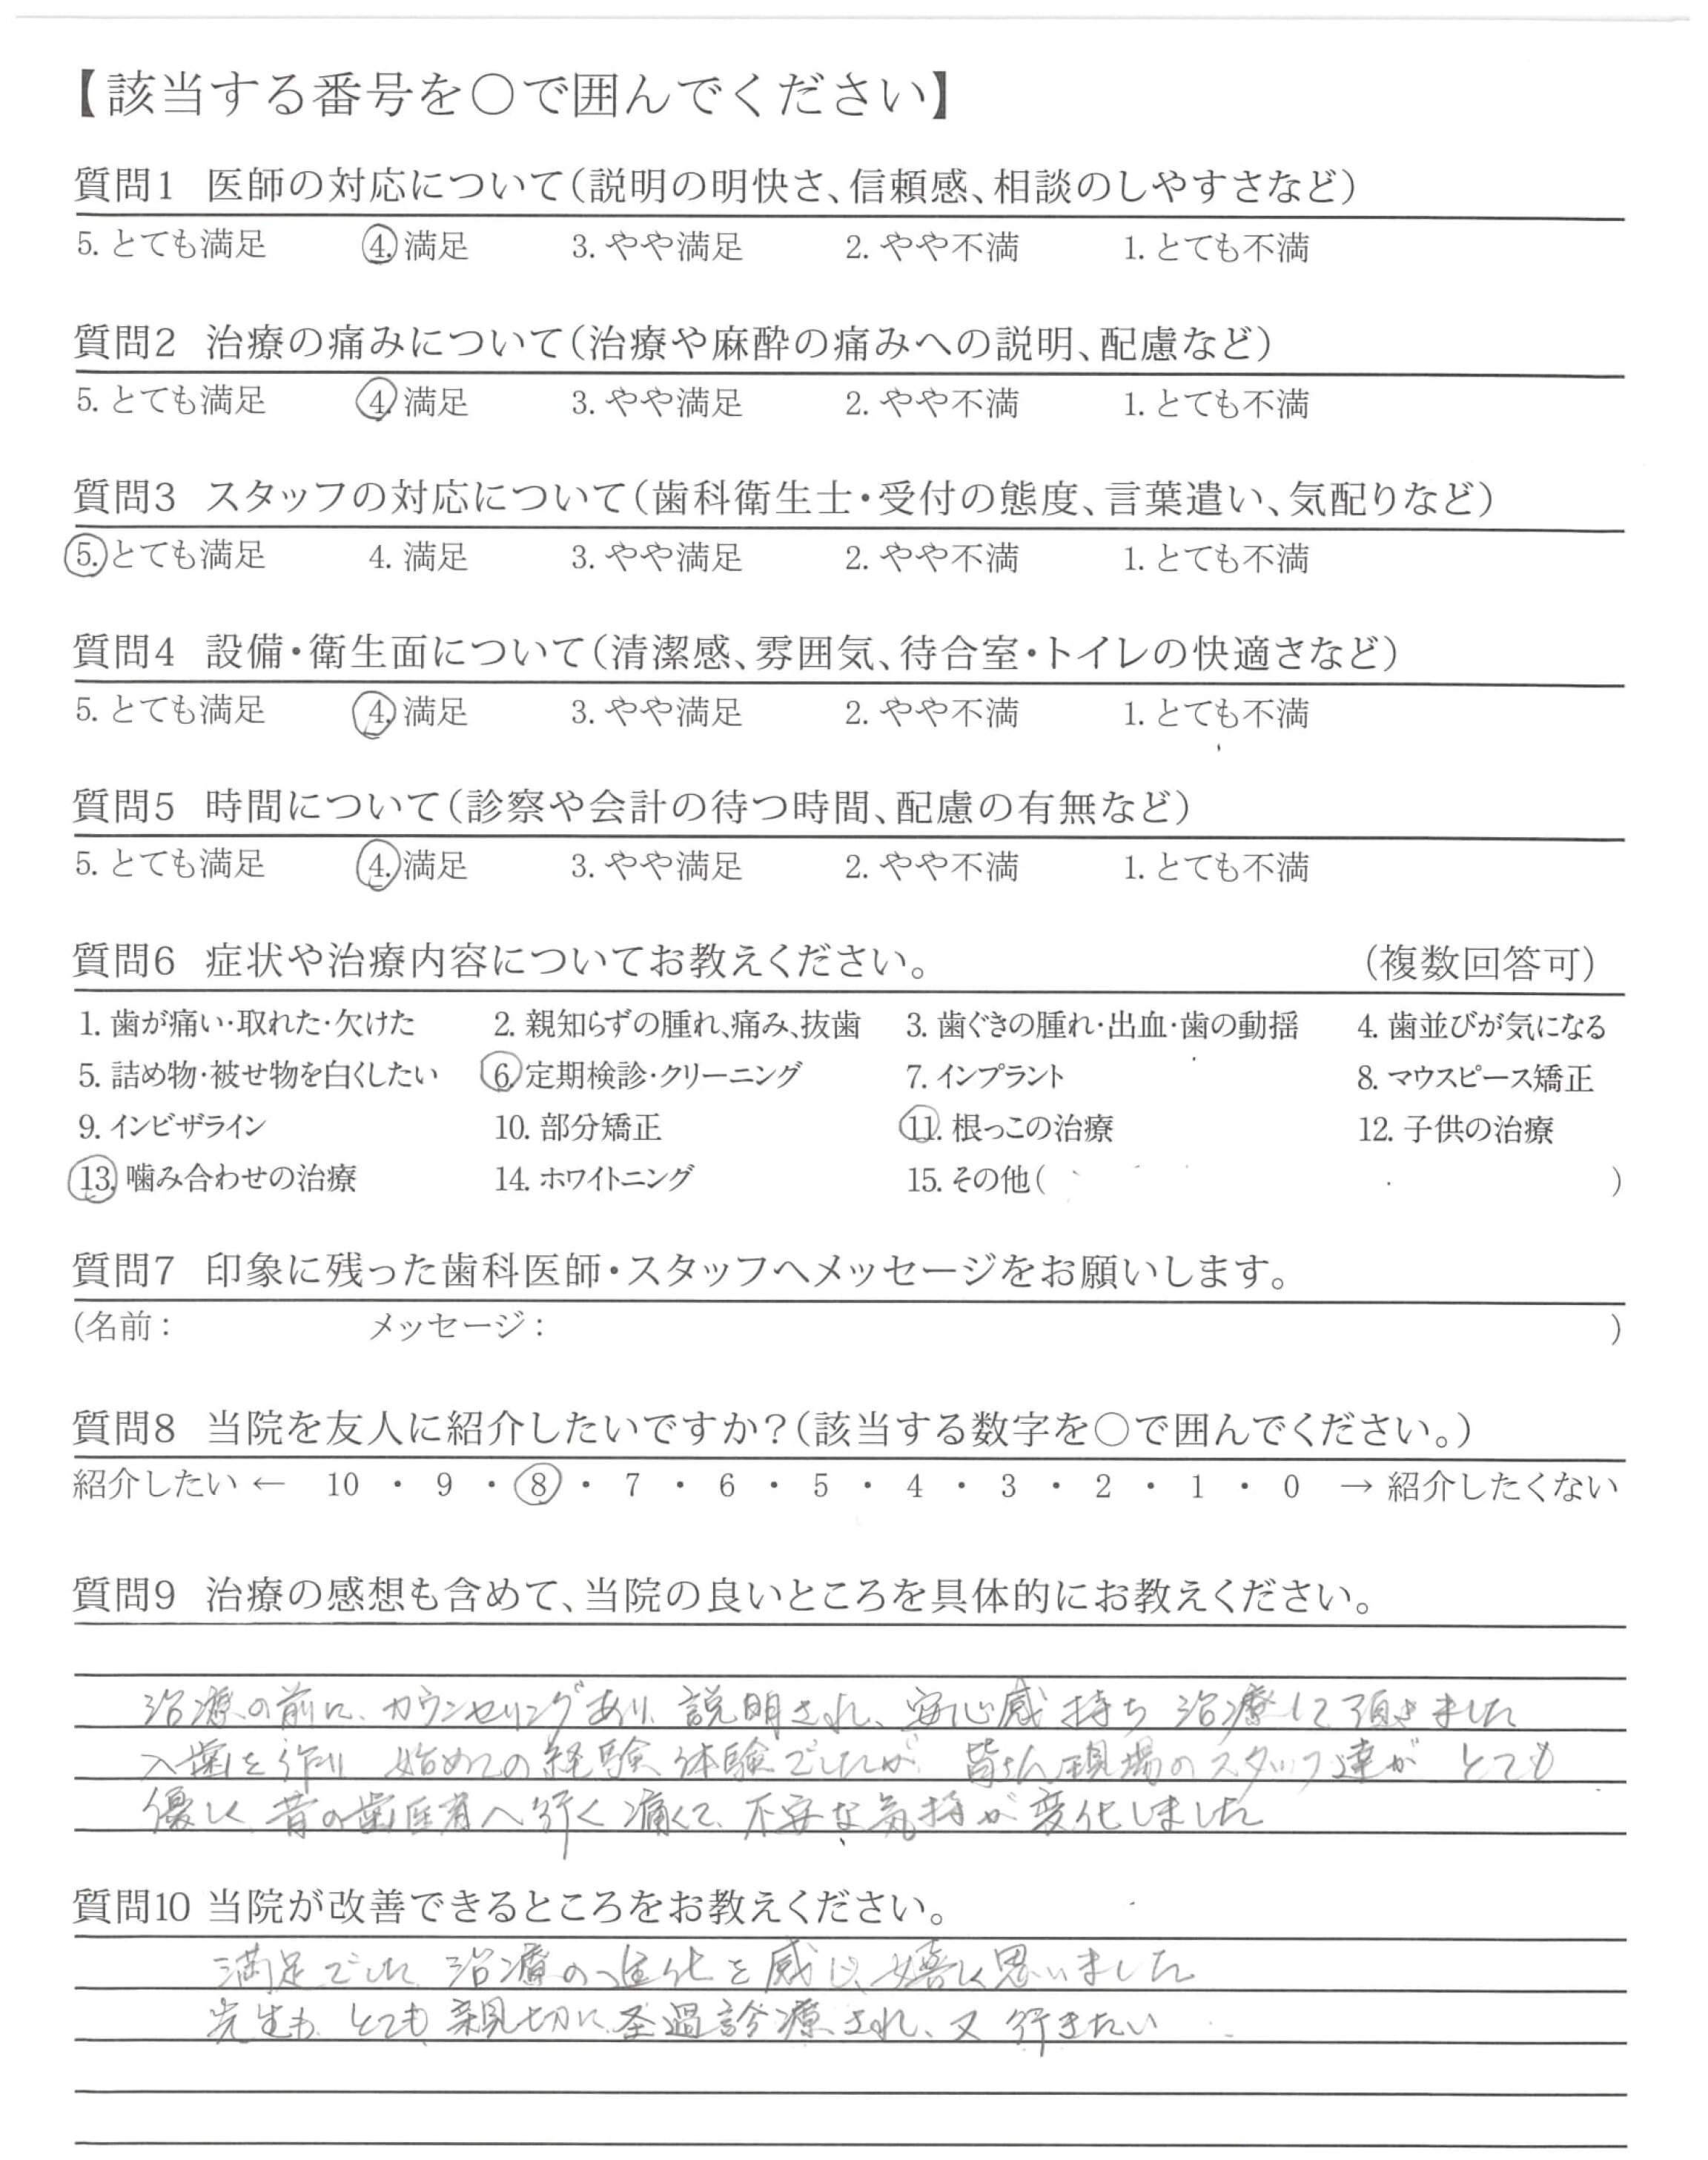 【該当する番号を○で囲んでください】
質問1 医師の対応について(説明の明快さ、信頼感、相談のしやすさなど)
5. とても満足 4. 満足 3. やや満足 2. やや不満 1. とても不満
質問2 治療の痛みについて(治療や麻酔の痛みへの説明、配慮など)
5. とても満足 4. 満足 3. やや満足 2. やや不満 1. とても不満
質問3 スタッフの対応について(歯科衛生士・受付の態度、言葉遣い、気配りなど)
5. とても満足 4. 満足 3. やや満足 2. やや不満 1. とても不満
質問4 設備・衛生面について(清潔感、雰囲気、待合室・トイレの快適さなど)
5. とても満足 4. 満足 3. やや満足 2. やや不満 1. とても不満
質問5 時間について(診察や会計の待つ時間、配慮の有無など)
5. とても満足 4. 満足 3. やや満足 2. やや不満 1. とても不満
質問6 症状や治療内容についてお教えください。 (複数回答可)
1. 歯が痛い・取れた・欠けた 2. 親知らずの腫れ、痛み、抜歯 3. 歯ぐきの腫れ・出血・歯の動揺 4. 歯並びが気になる
5. 詰め物・被せ物を白くしたい 6. 定期検診・クリーニング 7. インプラント 8. マウスピース矯正
9. インビザライン 10. 部分矯正 11. 根っこの治療 12. 子供の治療
13. 噛み合わせの治療 14. ホワイトニング 15. その他( )
質問7 印象に残った歯科医師・スタッフへメッセージをお願いします。
(名前: メッセージ: )
質問8 当院を友人に紹介したいですか?(該当する数字を○で囲んでください。)
紹介したい ← 10 ・ 9 ・ 8 ・ 7 ・ 6 ・ 5 ・ 4 ・ 3 ・ 2 ・ 1 ・ 0 → 紹介したくない
質問9 治療の感想も含めて、当院の良いところを具体的にお教えください。
治療の前に、カウンセリングあり、説明され、安心感 持ち 治療して頂きました
入歯を作り 始めての経験、体験でしたが 皆さん現場のスタッフ達が とても
優しく、昔の歯医者へ行く 痛くて、不安な気持が 変化しました
質問10 当院が改善できるところをお教えください。
満足でした 治療の進化を感じ、嬉しく思いました
先生も とても 親切に 診療され、又 行きたい